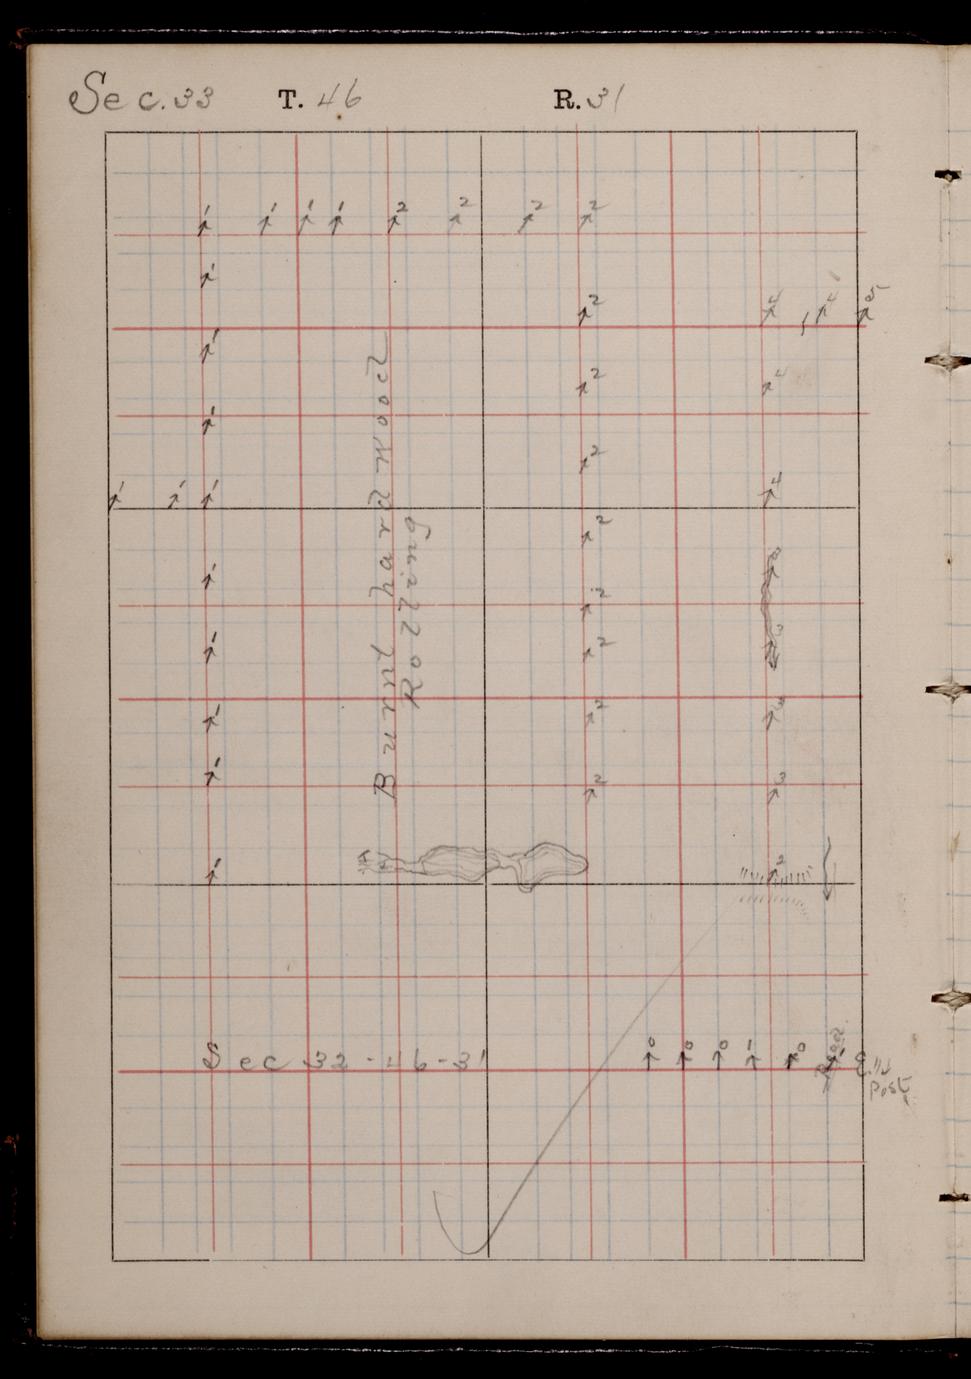 Sec. 33 T. 46 R. 31
1 1 1 1 2 2 2 2
1
2 4 4 5
1
2 4
1
2
1 1 1 4
2
1
2
1 2
1 2
1 2 3
1 2
Burnt hard wood
Rolling
Sec 32-46-31 0 0 0 1 0
Road
Post